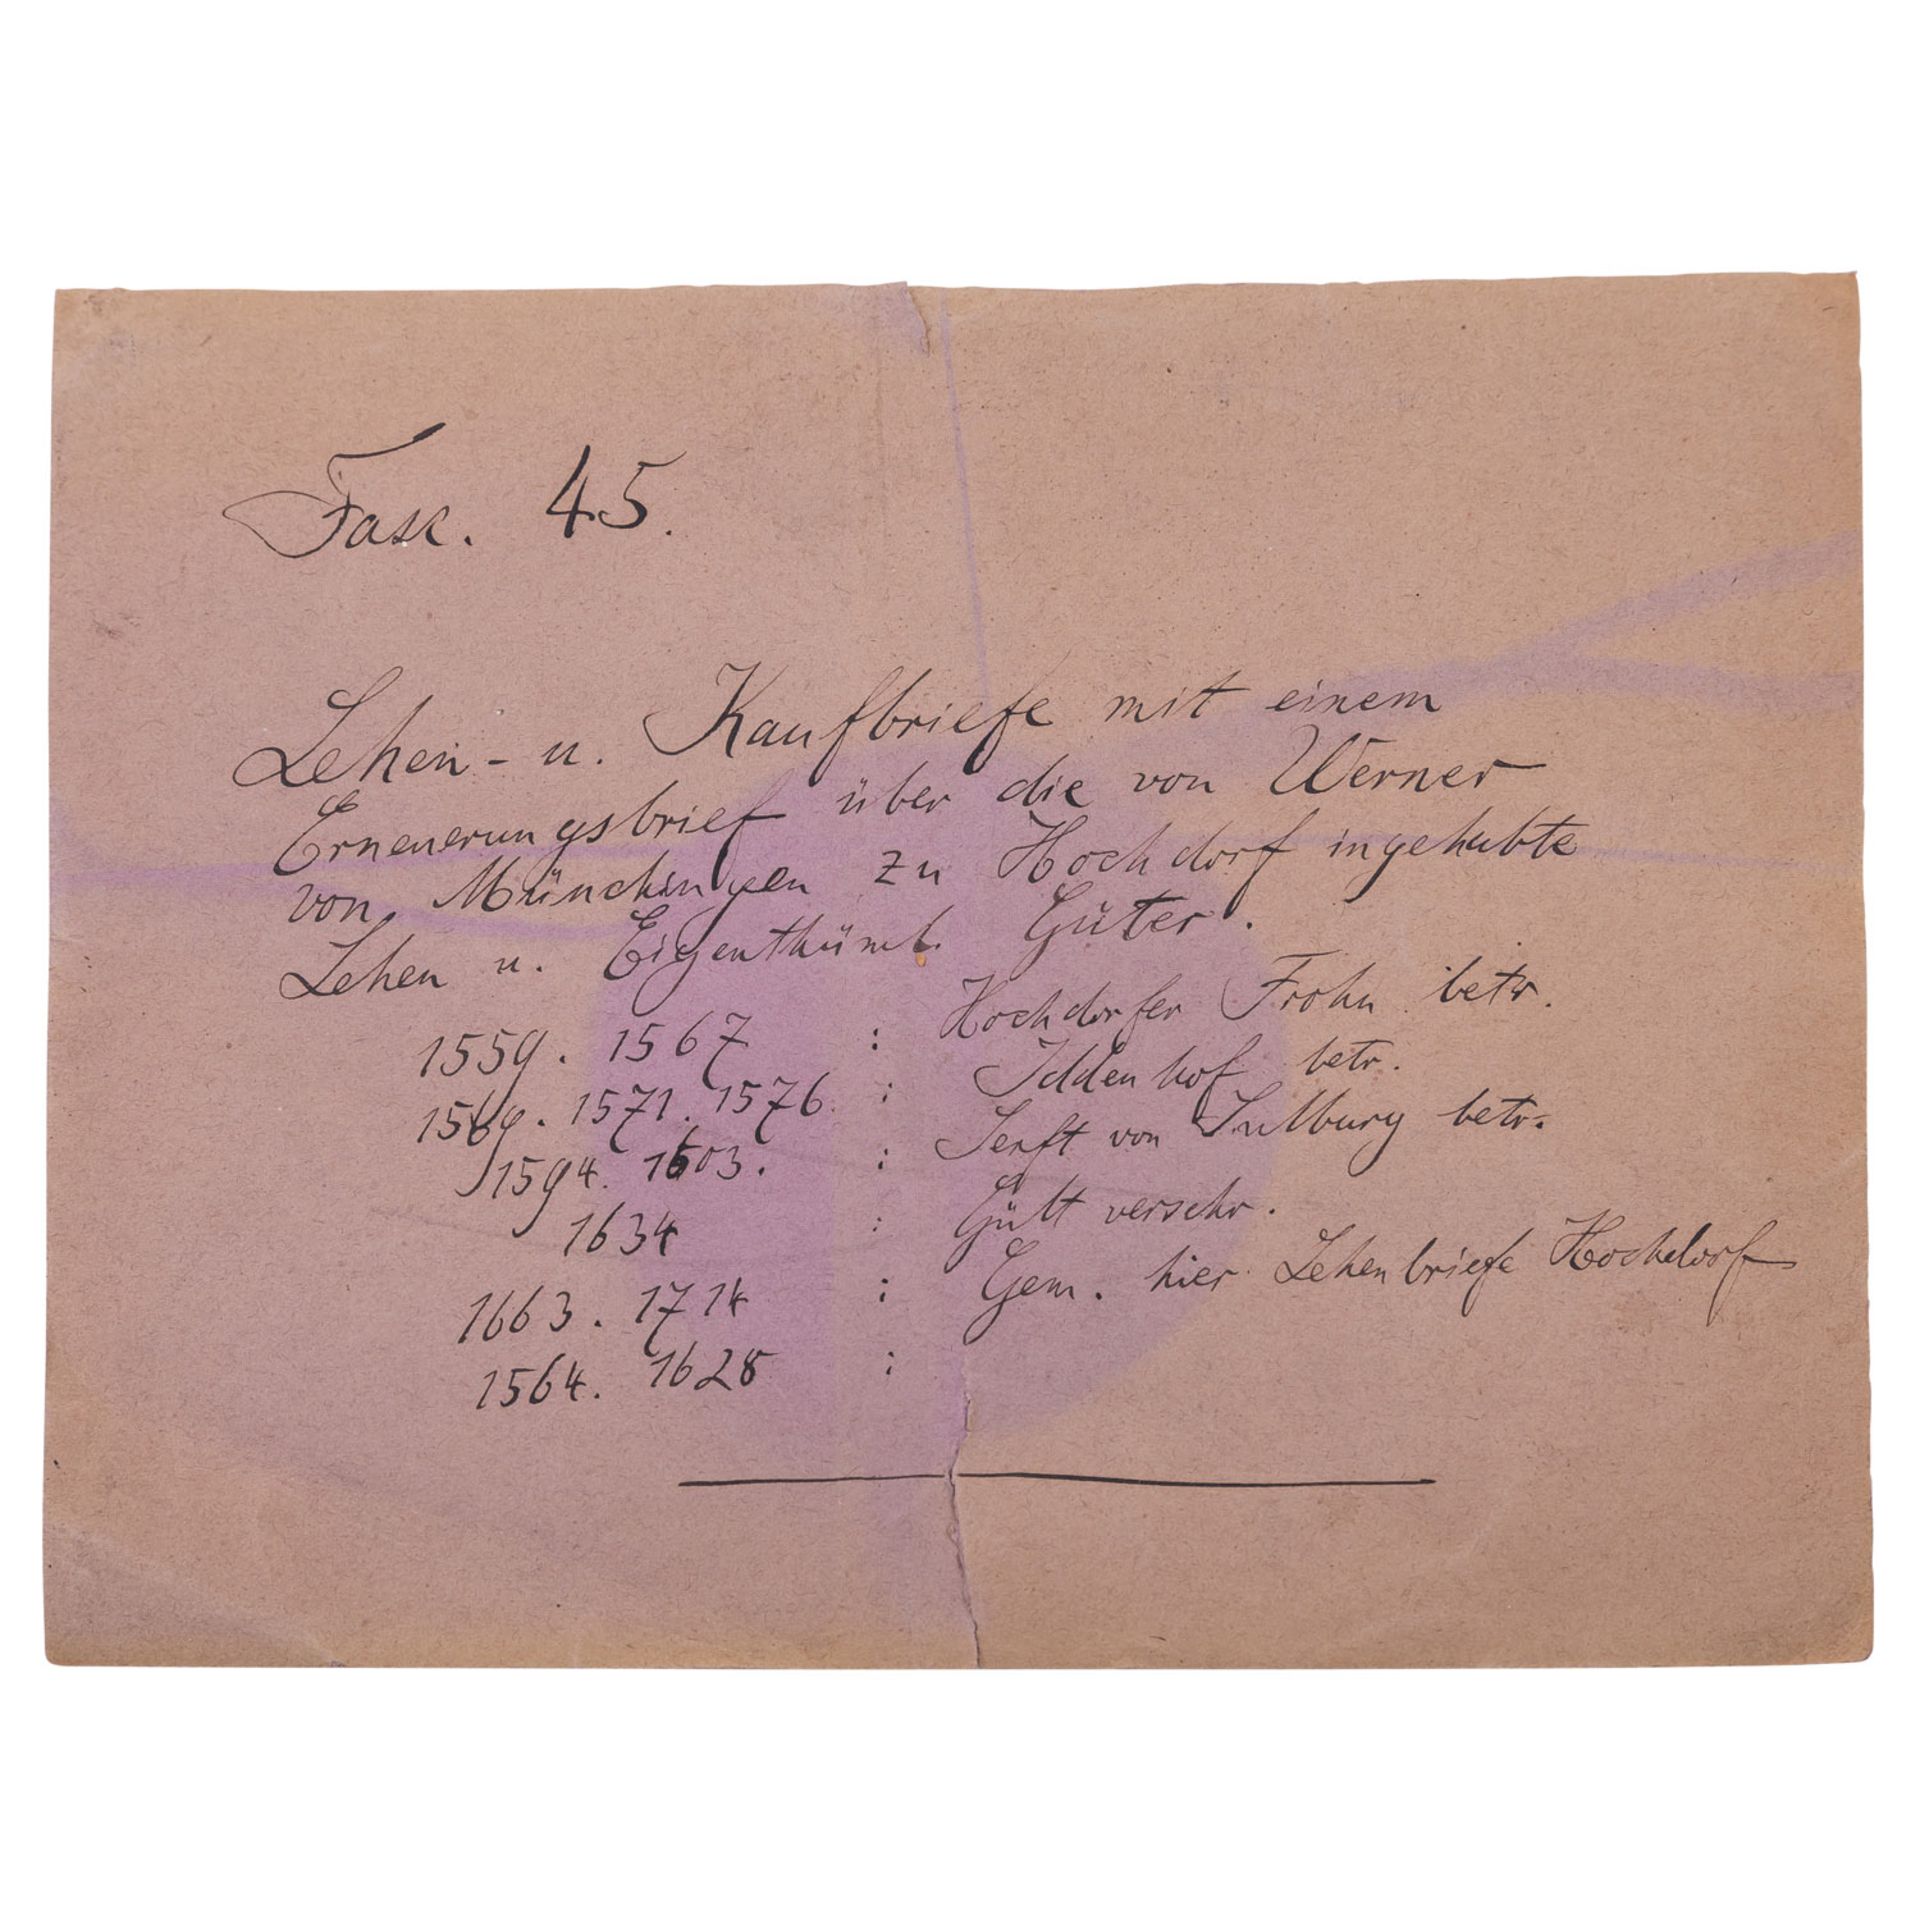 Fasc. 45.
Lehen - u. Kaufbriefe mit einem
Erneuerungsbrief über die von Werner
von Münchingen zu Hochdorf ingehabte
Lehen u. Eigenthüml. Güter.
1559. 1567 : Hochdorfer Frohn betr.
1569. 1571. 1576 : Iddenhof betr.
1594. 1603. : Senft von Sulburg betr.
1634 : Gült verschr.
1663. 1714 : Gem. hier Lehenbriefe Hochdorf
1564. 1628 :